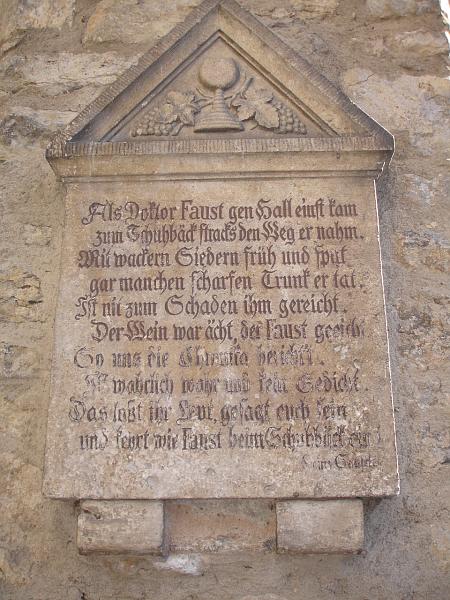 Als Doktor Faust gen Hall einst kam
zum Schuhbäck stracks den Weg er nahm.
Mit wackern Siedern früh und spat
gar manchen scharfen Trunk er tat.
Ist nit zum Schaden ihm gereicht.
Der Wein war ächt, der Faust geeicht
So uns die Chronica bericht't.
Ist wahrlich wahr und kein Gedicht.
Das laßt ihr Leut, gesagt euch sein
und kehrt wie Faust beim Schuhbäck ein